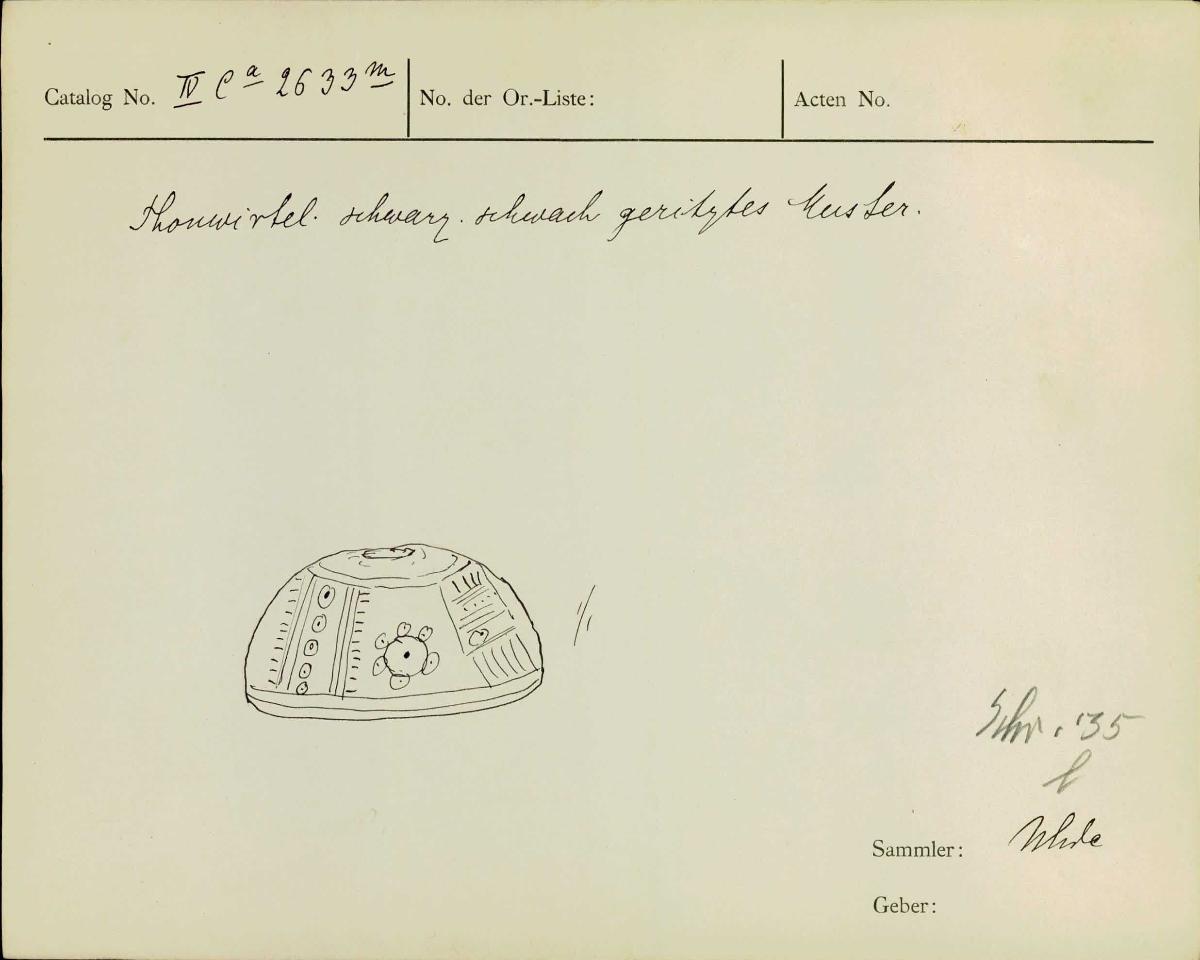 Catalog No. IV Ca 2633 m
No. der Or.-Liste:
Acten No.
Thonwirtel. schwarz. schwach geritztes Muster.
1/1
Schr. '35
l
Sammler: Uhde
Geber: